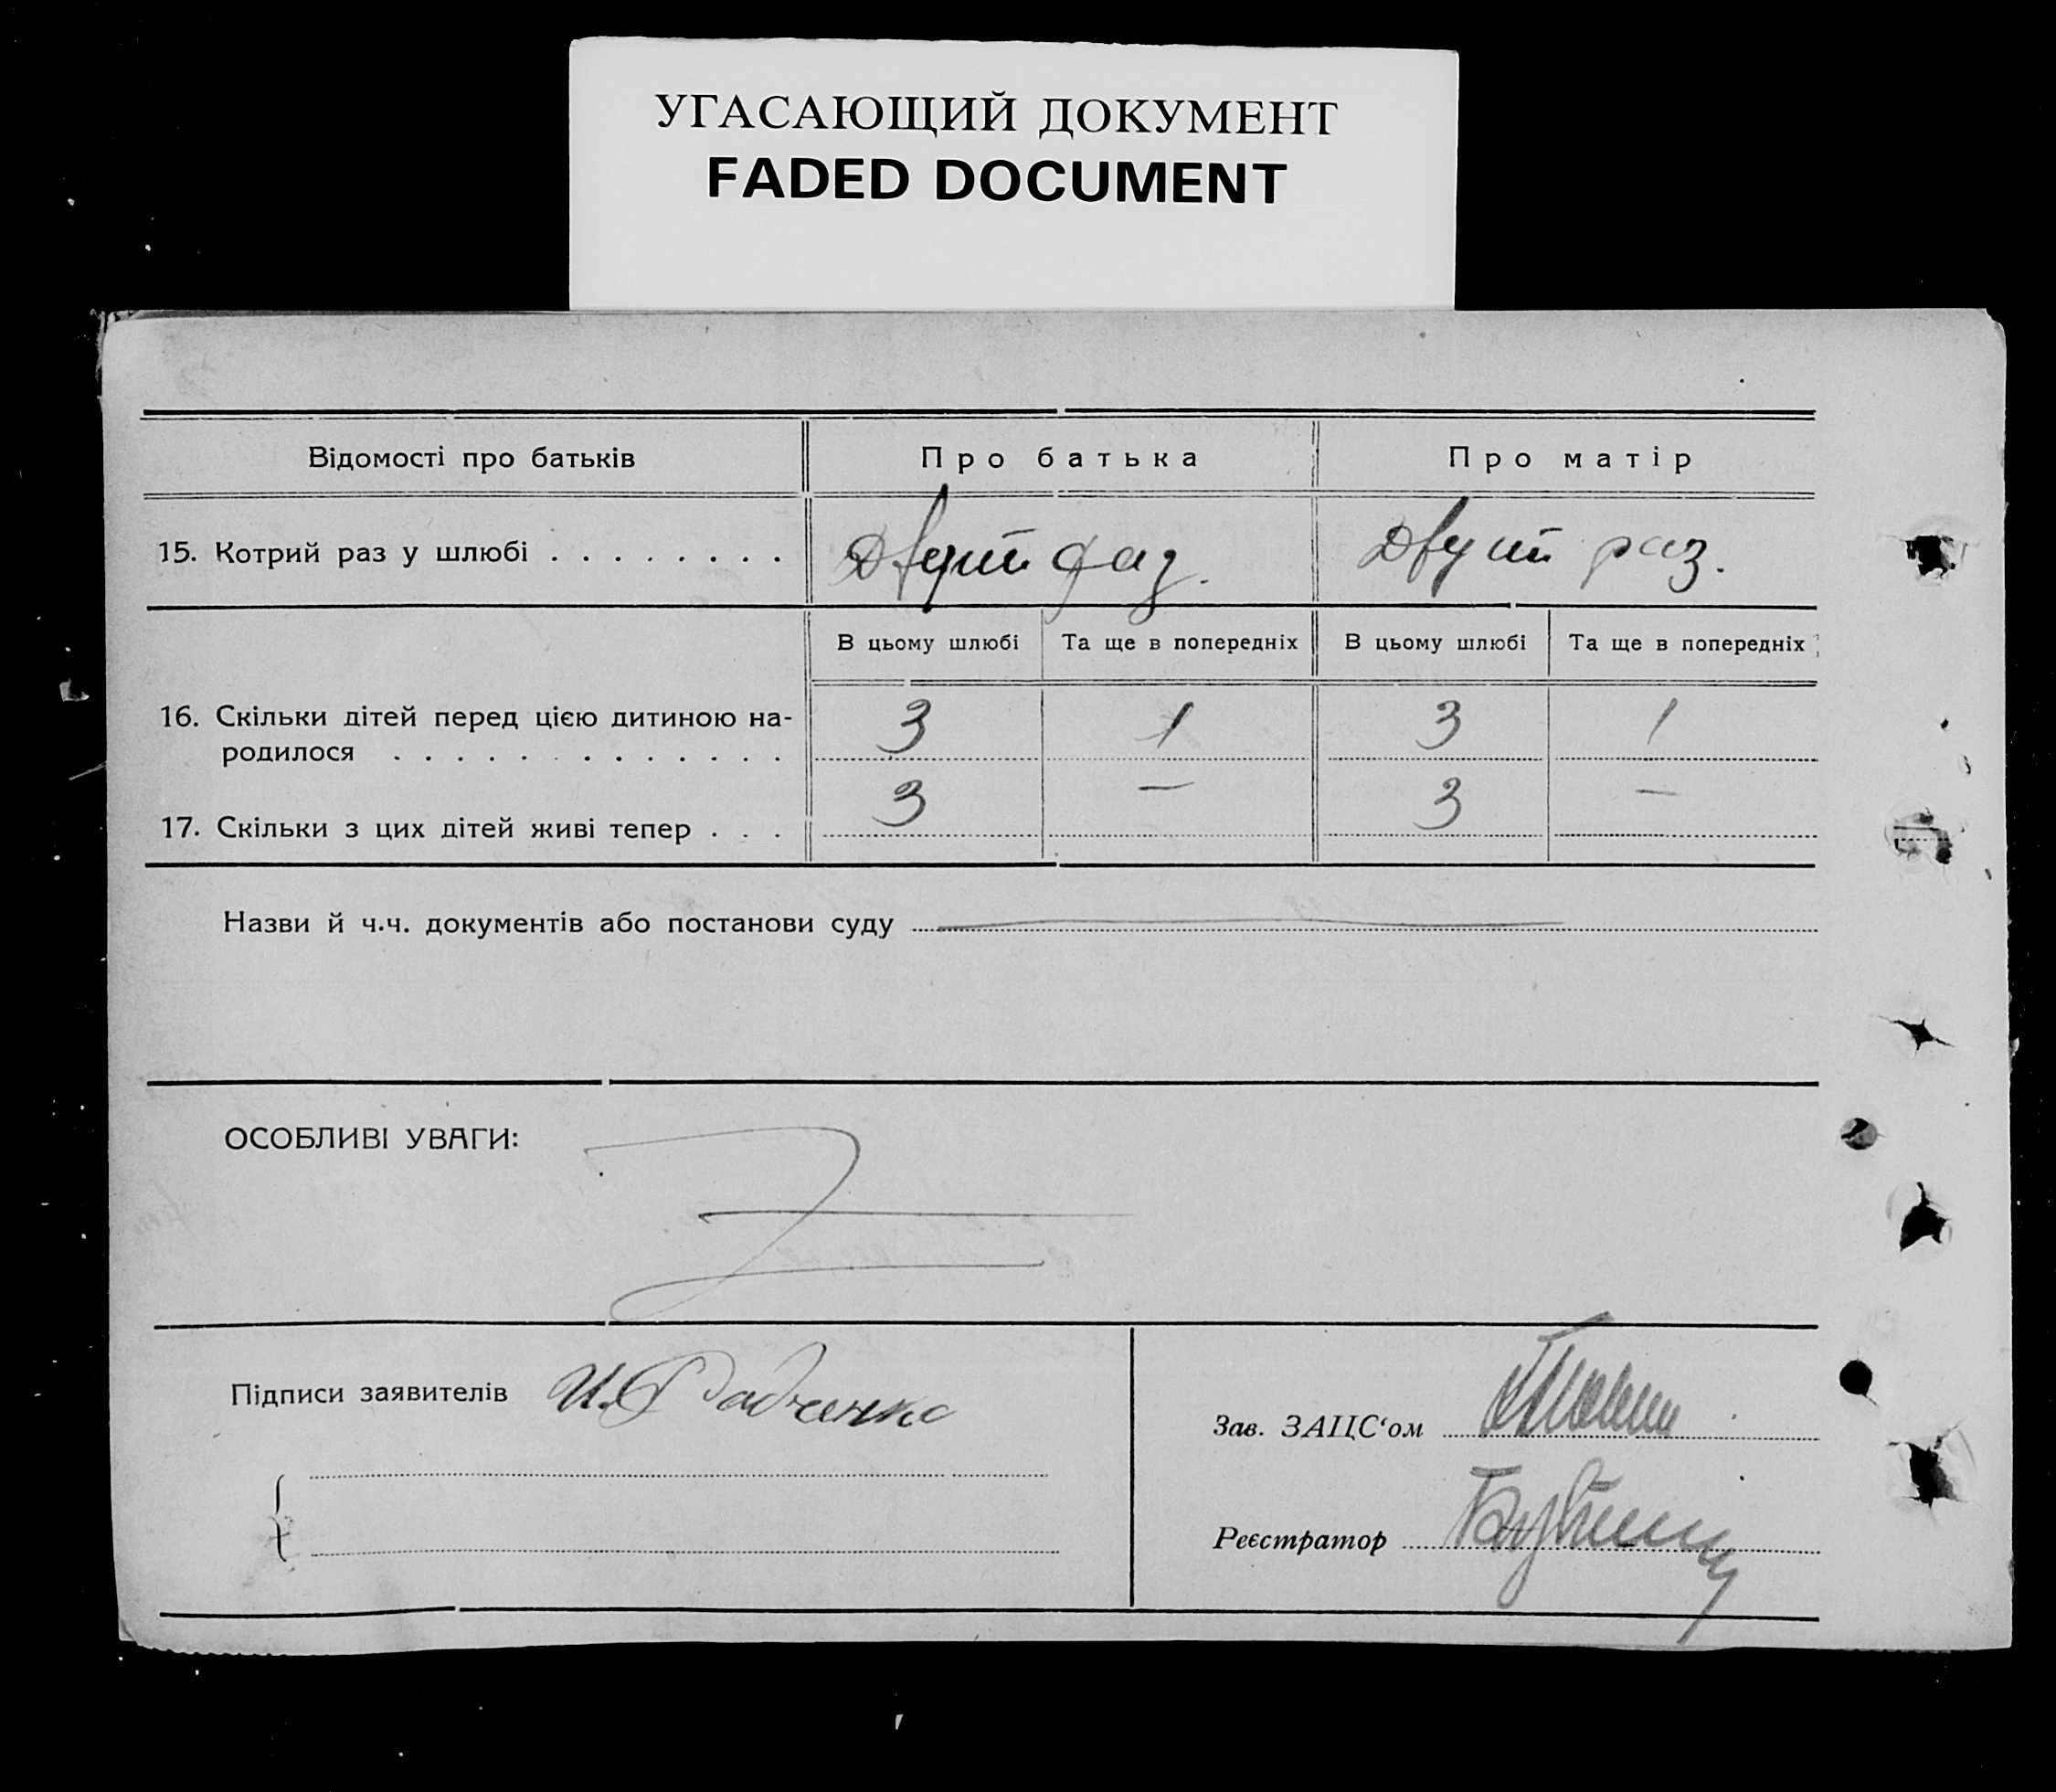 УГАСАЮЩИЙ ДОКУМЕНТ
FADED DOCUMENT
Відомості про батьків Про батька Про матір
15. Котрий раз у шлюбі . . . . . . . . Другий раз. Другий раз.
В цьому шлюбі Та ще в попередніх В цьому шлюбі Та ще в попередніх
16. Скільки дітей перед цією дитиною на- 3 1 3 1
родилося . . . . . . . . . . . . .
17. Скільки з цих дітей живі тепер . . . 3 — 3 —
Назви й ч.ч. документів або постанови суду
ОСОБЛИВІ УВАГИ:
Підписи заявителів И. Радченко
Зав. ЗАЦС‘ом
Реєстратор